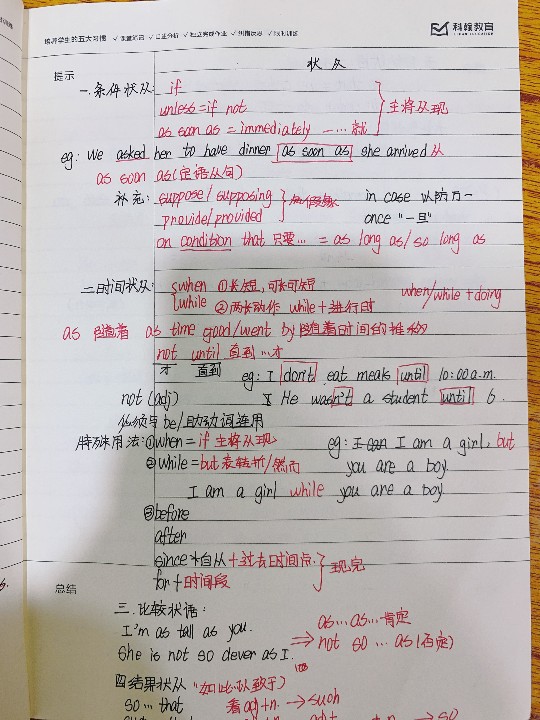 培养学生的五大习惯 ✓课堂笔记 ✓自主分析 ✓独立完成作业 ✓纠错反思 ✓限时训练
科翰教育
提示
状从
一.条件状从: if
unless=if not
as soon as = immediately 一…就
主将从现
eg: We asked her to have dinner as soon as she arrived 从
as soon as(定语从句)
补充: suppose/supposing
provide/provided
in case 以防万一
once "一旦"
on condition that 只要… = as long as/so long as
二时间状从: when ①长/短,可长可短
while ②两长动作 while+进行时
when/while+doing
as 随着 as time good/went by 随着时间的推移
not until 直到…才
才 直到
eg: I don't eat meals until 10:00a.m.
not (adj)
He wasn't a student until 6.
必须与be/助动词连用
特殊用法: ①when=if 主将从现
eg: I am a girl, but
②while=but 表转折/然而
you are a boy.
I am a girl while you are a boy.
③before
after
since+自从+过去时间点
for+时间段
现完
总结
三.比较状语:
as…as…肯定
I'm as tall as you.
not so … as(否定)
She is not so clever as I.
四结果状从 "如此以致于)
so … that
看adj+n. → such
adj+n → so